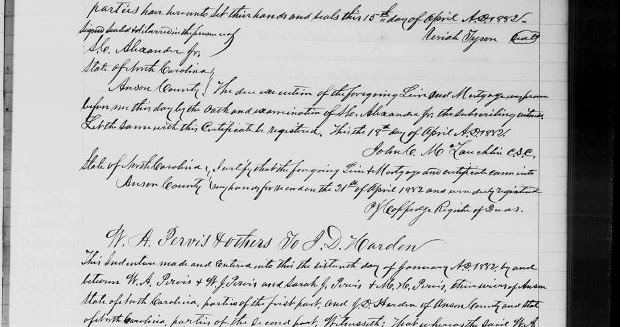 parties hereunto set their hands and seals this 15th day of April A.D. 1882.
Signed sealed & delivered in the presence of Uriah Tyson (seal)
S.C. Alexander Jr.
State of North Carolina
Anson County The due execution of the foregoing Lien and Mortgage was proven
before me this day by the oath and examination of S.C. Alexander Jr. the subscribing witness
Let the same with this Certificate be registered. This the 18th day of April A.D. 1882
John C. McLauchlin C.S.C.
State of North Carolina I certify that the foregoing Lien & Mortgage and certificate came into
Anson County my hands for record on the 21st of April 1882 and was duly registered
P.J. Coppedge Register of Deeds.
W. A. Pervis & others To J. D. Harden
This Indenture made and entered into this the sixteenth day of January A.D. 1882, by and
between W. A. Pervis & W. J. Pervis and Sarah J. Pervis & M. C. Pervis, their wives of Anson
State of North Carolina, parties of the first part, and J.D. Harden of Anson County and state
of North Carolina, parties of the second part, Witnesseth: That whereas the said W. A.